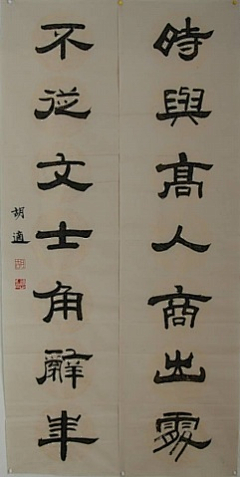 時與髙人商出處
不從文士角辭華
胡適